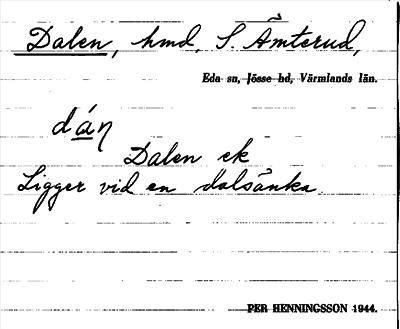 Dalen, hmd, S. Ämterud,
Eda sn, Jösse hd, Värmlands län.
dáŋ
Dalen ek
Ligger vid en dalsänka
PER HENNINGSSON 1944.